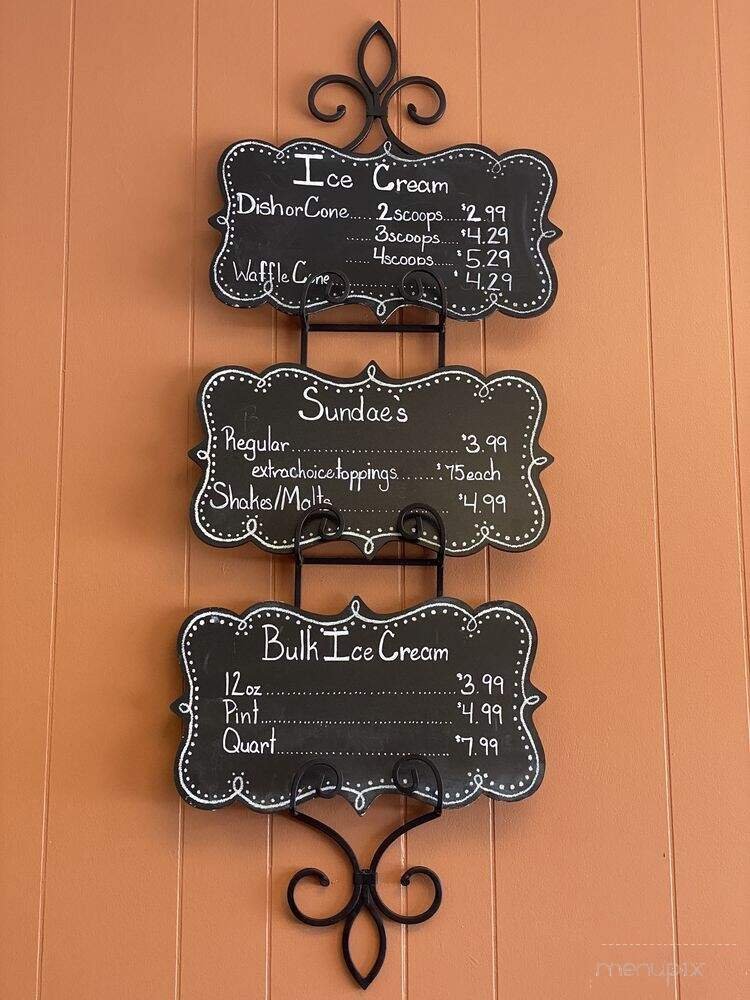 Ice Cream
Dish or Cone..... 2 scoops..... $2.99
...... 3 scoops.... $4.29
...... 4 scoops..... $5.29
Waffle Cone ........................ $4.29
Sundae's
Regular.................................. $3.99
extra choice toppings........ $.75 each
Shakes/Malts ...................... $4.99
Bulk Ice Cream
12oz....................................... $3.99
Pint........................................ $4.99
Quart..................................... $7.99
menupix